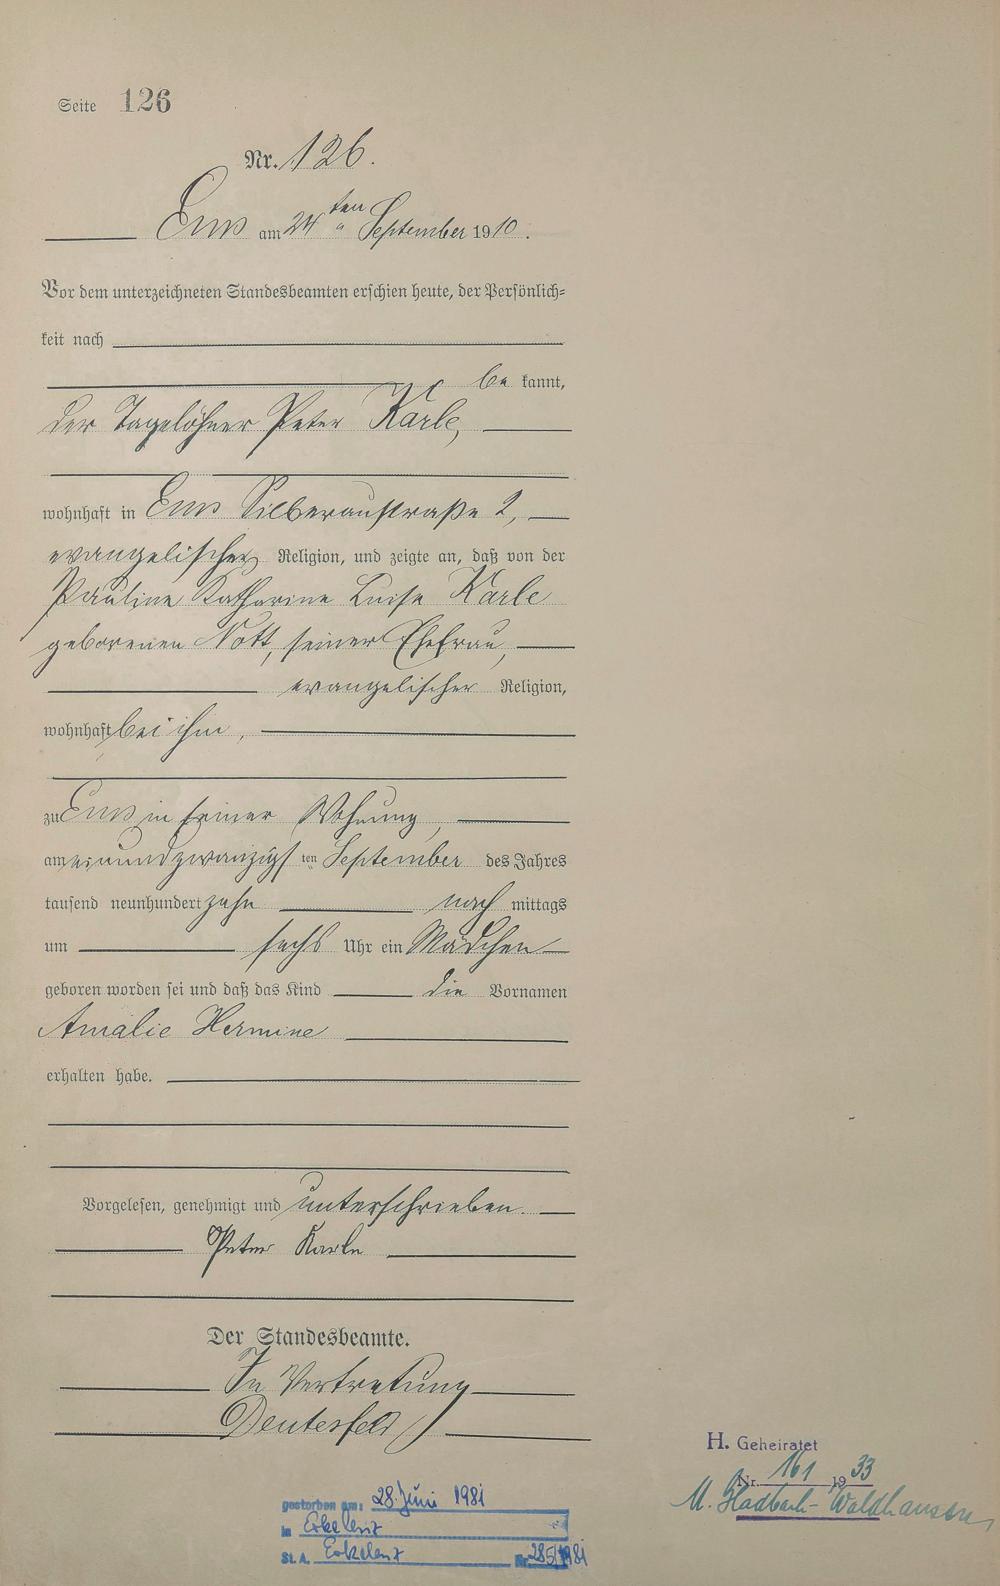 Seite 126
Nr. 126.
Ems am 24ten September 1910.
Vor dem unterzeichneten Standesbeamten erschien heute, der Persönlich=
keit nach
be kannt,
der Tagelöhner Peter Karle,
wohnhaft in Ems Silberaustraße 2,
evangelischer Religion, und zeigte an, daß von der
Pauline Katharine Luise Karle
geborenen Nott, seiner Ehefrau,
evangelischer Religion,
wohnhaft bei ihm,
zu Ems in seiner Wohnung,
am einundzwanzigs ten September des Jahres
tausend neunhundert zehn nach mittags
um sechs Uhr ein Mädchen
geboren worden sei und daß das Kind die Vornamen
Amalie Hermine
erhalten habe.
Vorgelesen, genehmigt und unterschrieben.
Peter Karle
Der Standesbeamte.
In Vertretung
Deutesfeld
H. Geheiratet
Nr. 161 1933
M. Gladbach-Waldhausen
gestorben am: 28. Juni 1981
in Erkelenz
St. A. Erkelenz Nr. 285/1981